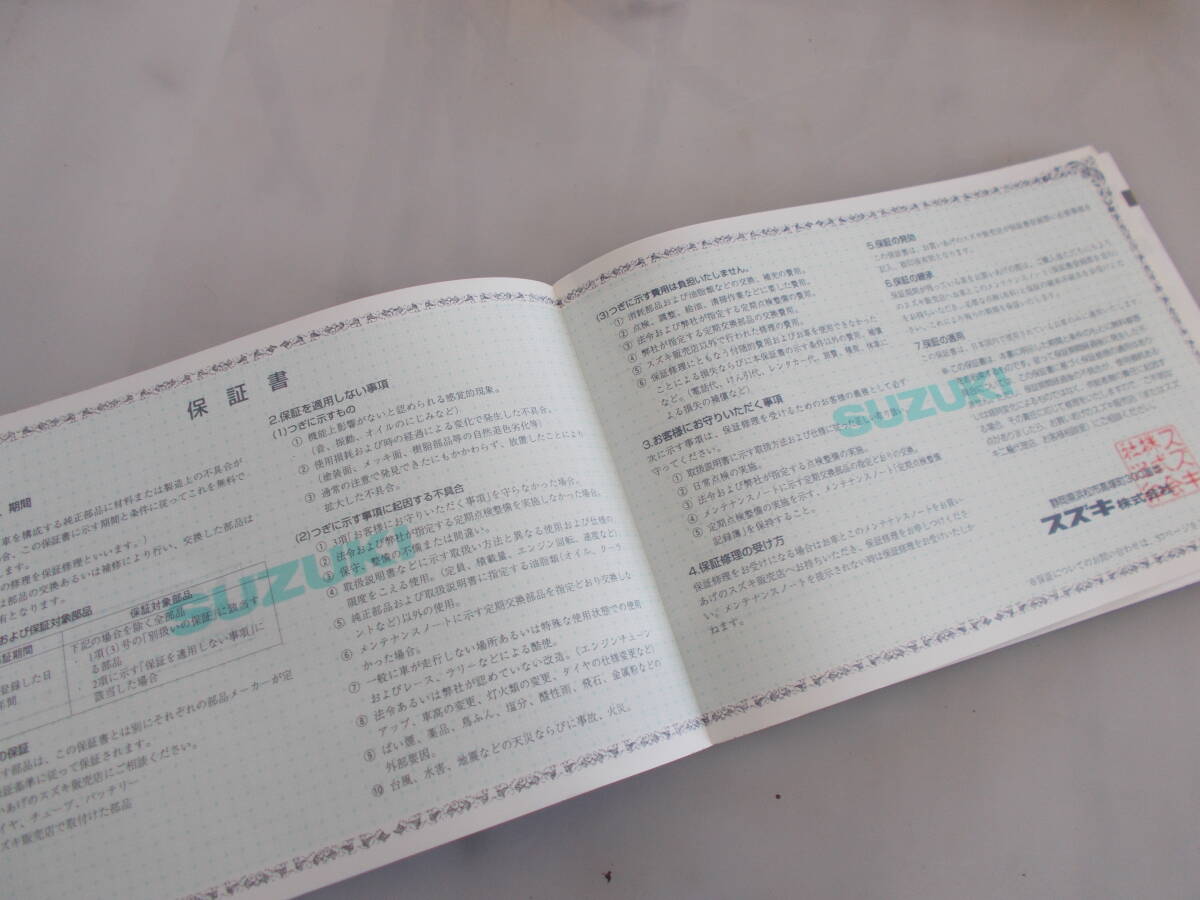 保証書
、期間
車を構成する純正部品に材料または製造上の不具合が
合、この保証書に示す期間と条件に従ってこれを無料で
します。
の修理を保証修理といいます。)
は部品の交換あるいは補修により行い、交換した部品は
有となります。
および保証対象部品
証期間
保証対象部品
登録した日
年間
下記の場合を除く全部品
・1項(3)号の「別扱いの保証」に該当す
る部品
・2項に示す「保証を適用しない事項」に
該当した場合
の保証
す部品は、この保証書とは別にそれぞれの部品メーカーが定
証基準に従って保証されます。
いあげのスズキ販売店にご相談ください。
イヤ、チューブ、バッテリー
スズキ販売店で取付けた部品
SUZUKI
2.保証を適用しない事項
(1)つぎに示すもの
① 機能上影響がないと認められる感覚的現象。
(音、振動、オイルのにじみなど)
② 使用損耗および時の経過による変化で発生した不具合。
(塗装面、メッキ面、樹脂部品等の自然退色劣化等)
③ 通常の注意で発見できたにもかかわらず、放置したことにより
拡大した不具合。
(2)つぎに示す事項に起因する不具合
① 3項「お客様にお守りいただく事項」を守らなかった場合。
② 法令および弊社が指定する定期点検整備を実施しなかった場合。
③ 保守、整備の不備または間違い。
④ 取扱説明書などに示す取扱い方法と異なる使用および仕様の
限度をこえる使用。(定員、積載量、エンジン回転、速度など)
⑤ 純正部品および取扱説明書に指定する油脂類(オイル、クーラ
ントなど)以外の使用。
⑥ メンテナンスノートに示す定期交換部品を指定どおり交換しな
かった場合。
⑦ 一般に車が走行しない場所あるいは特殊な使用状態での使用
およびレース、ラリーなどによる酷使。
⑧ 法令あるいは弊社が認めていない改造。(エンジンチューン
アップ、車高の変更、灯火類の変更、タイヤの仕様変更など)
⑨ ばい煙、薬品、鳥ふん、塩分、酸性雨、飛石、金属粉などの
外部要因。
⑩ 台風、水害、地震などの天災ならびに事故、火災。
(3)つぎに示す費用は負担いたしません。
① 消耗部品および油脂類などの交換、補充の費用。
② 点検、調整、給油、清掃作業などに要した費用。
③ 法令および弊社が指定する定期点検整備の費用。
④ 弊社が指定する定期交換部品の交換費用。
⑤ スズキ販売店以外で行われた修理の費用。
⑥ 保証修理にともなう付随的費用およびお車を使用できなかった
ことによる損失ならびに本保証書の示す条件以外の費用、補償
など。(電話代、けん引代、レンタカー代、酒費、積荷、休業に
よる損失の補償など)
3.お客様にお守りいただく事項
次に示す事項は、保証修理を受けるためのお客様の義務として必ず
守ってください。
① 取扱説明書に示す取扱方法および仕様に従った正しい取り扱い。
② 日常点検の実施。
③ 法令および弊社が指定する点検整備の実施。
④ メンテナンスノートに示す定期交換部品の指定どおりの交換。
⑤ 定期点検整備の実施を示す、メンテナンスノート(定期点検整備
記録簿)を保持すること。
4.保証修理の受け方
保証修理をお受けになる場合はお車とこのメンテナンスノートをお買い
あげのスズキ販売店へお持ちいただき、保証修理をお申しつけくださ
い。メンテナンスノートを提示されない時は保証修理をお受けいたしか
ねます。
SUZUKI
5.保証の発効
この保証書は、お買いあげのスズキ販売店が保証書交付欄に必要事項を
記入、捺印後有効となります。
6.保証の継承
7.保証の適用
この保証書は、日本国内で使用されているお車のみに適用いたします。
静岡県浜松市高塚町300番地
スズキ株式会社